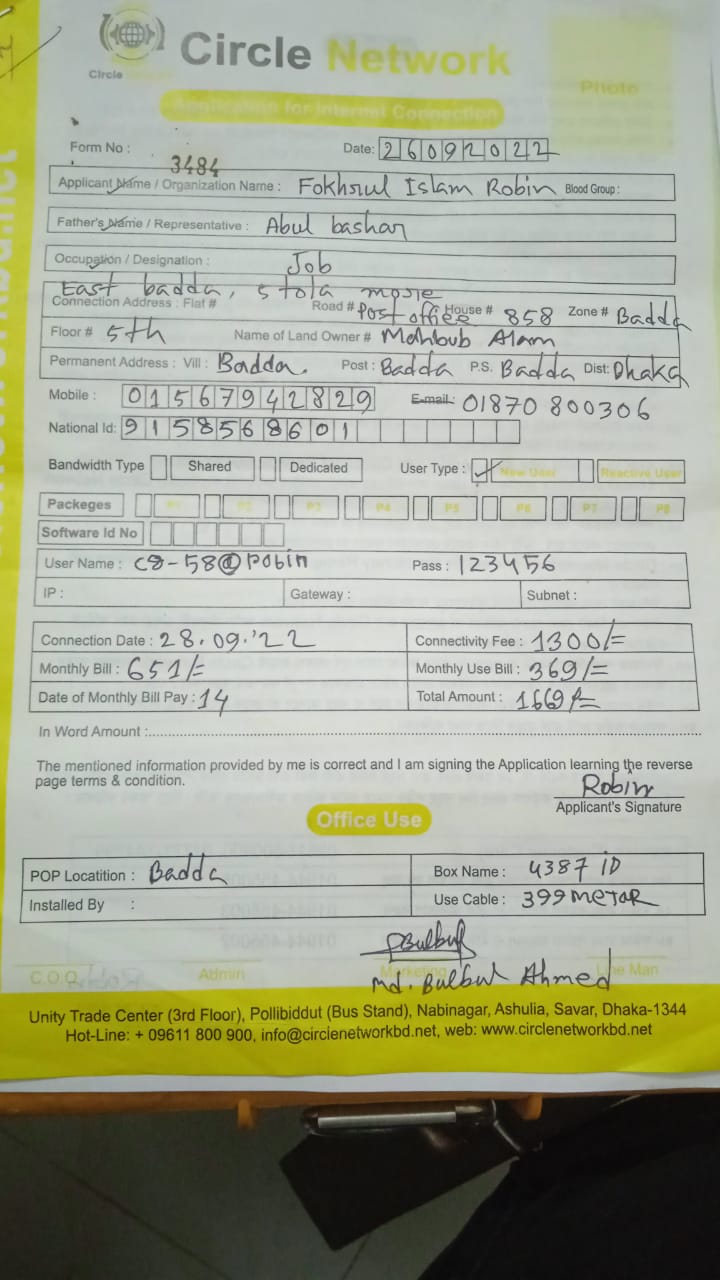 Circle Network
Circle Network
Application for Internet Connection
Photo
Form No : 3484
Date: 26092022
Applicant Name / Organization Name : Fokhrul Islam Robin Blood Group :
Father's Name / Representative : Abul bashar
Occupation / Designation : Job
East badda, 5 tola mosje
Connection Address : Flat # Road # Post office House # 858 Zone # Badda
Floor # 5th Name of Land Owner # Mahbub Alam
Permanent Address : Vill : Badda. Post : Badda P.S. Badda Dist: Dhaka
Mobile : 01567942829 E-mail: 01870 800306
National Id: 9158568601
Bandwidth Type Shared Dedicated User Type : New User Reactive User
Packeges P1 P2 P3 P4 P5 P6 P7 P8
Software Id No
User Name : C8-58@Robin Pass : 123456
IP : Gateway : Subnet :
Connection Date : 28.09.'22 Connectivity Fee : 1300/=
Monthly Bill : 651/= Monthly Use Bill : 369/=
Date of Monthly Bill Pay : 14 Total Amount : 1669/=
In Word Amount :
The mentioned information provided by me is correct and I am signing the Application learning the reverse
page terms & condition.
Robin
Applicant's Signature
Office Use
POP Locatition : Badda Box Name : 4387 iD
Installed By : Use Cable : 399 MeTaR
Bulbul
C.O.O Admin Marketing Line Man
Md. Bulbul Ahmed
Unity Trade Center (3rd Floor), Pollibiddut (Bus Stand), Nabinagar, Ashulia, Savar, Dhaka-1344
Hot-Line: + 09611 800 900, info@circlenetworkbd.net, web: www.circlenetworkbd.net